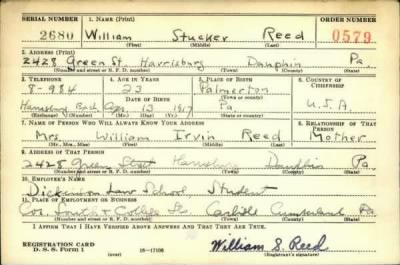 SERIAL NUMBER 1. NAME (Print) ORDER NUMBER
2680 William Stucker Reed 0579
(First) (Middle) (Last)
2. ADDRESS (Print)
2428 Green St. Harrisburg Dauphin Pa.
(Number and street or R. F. D. number) (Town) (County) (State)
3. TELEPHONE 4. AGE IN YEARS 5. PLACE OF BIRTH 6. COUNTRY OF CITIZENSHIP
8-984 23 Palmerton
DATE OF BIRTH (Town or county)
13 1917 Pa. U.S.A.
(Exchange) (Number) (Mo.) (Day) (Yr.) (State or country)
7. NAME OF PERSON WHO WILL ALWAYS KNOW YOUR ADDRESS 8. RELATIONSHIP OF THAT PERSON
Mrs. William Irvin Reed Mother
(Mr., Mrs., Miss) (First) (Middle) (Last)
9. ADDRESS OF THAT PERSON
2428 Green Street Harrisburg Dauphin Pa.
(Number and street or R. F. D. number) (Town) (County) (State)
10. EMPLOYER'S NAME
Dickinson Law School Student
11. PLACE OF EMPLOYMENT OR BUSINESS
Cor. & College Sts. Carlisle Cumberland Pa.
(Number and street or R. F. D. number) (Town) (County) (State)
I AFFIRM THAT I HAVE VERIFIED ABOVE ANSWERS AND THAT THEY ARE TRUE.
REGISTRATION CARD
D. S. S. Form 1 William S. Reed
(Registrant's signature)